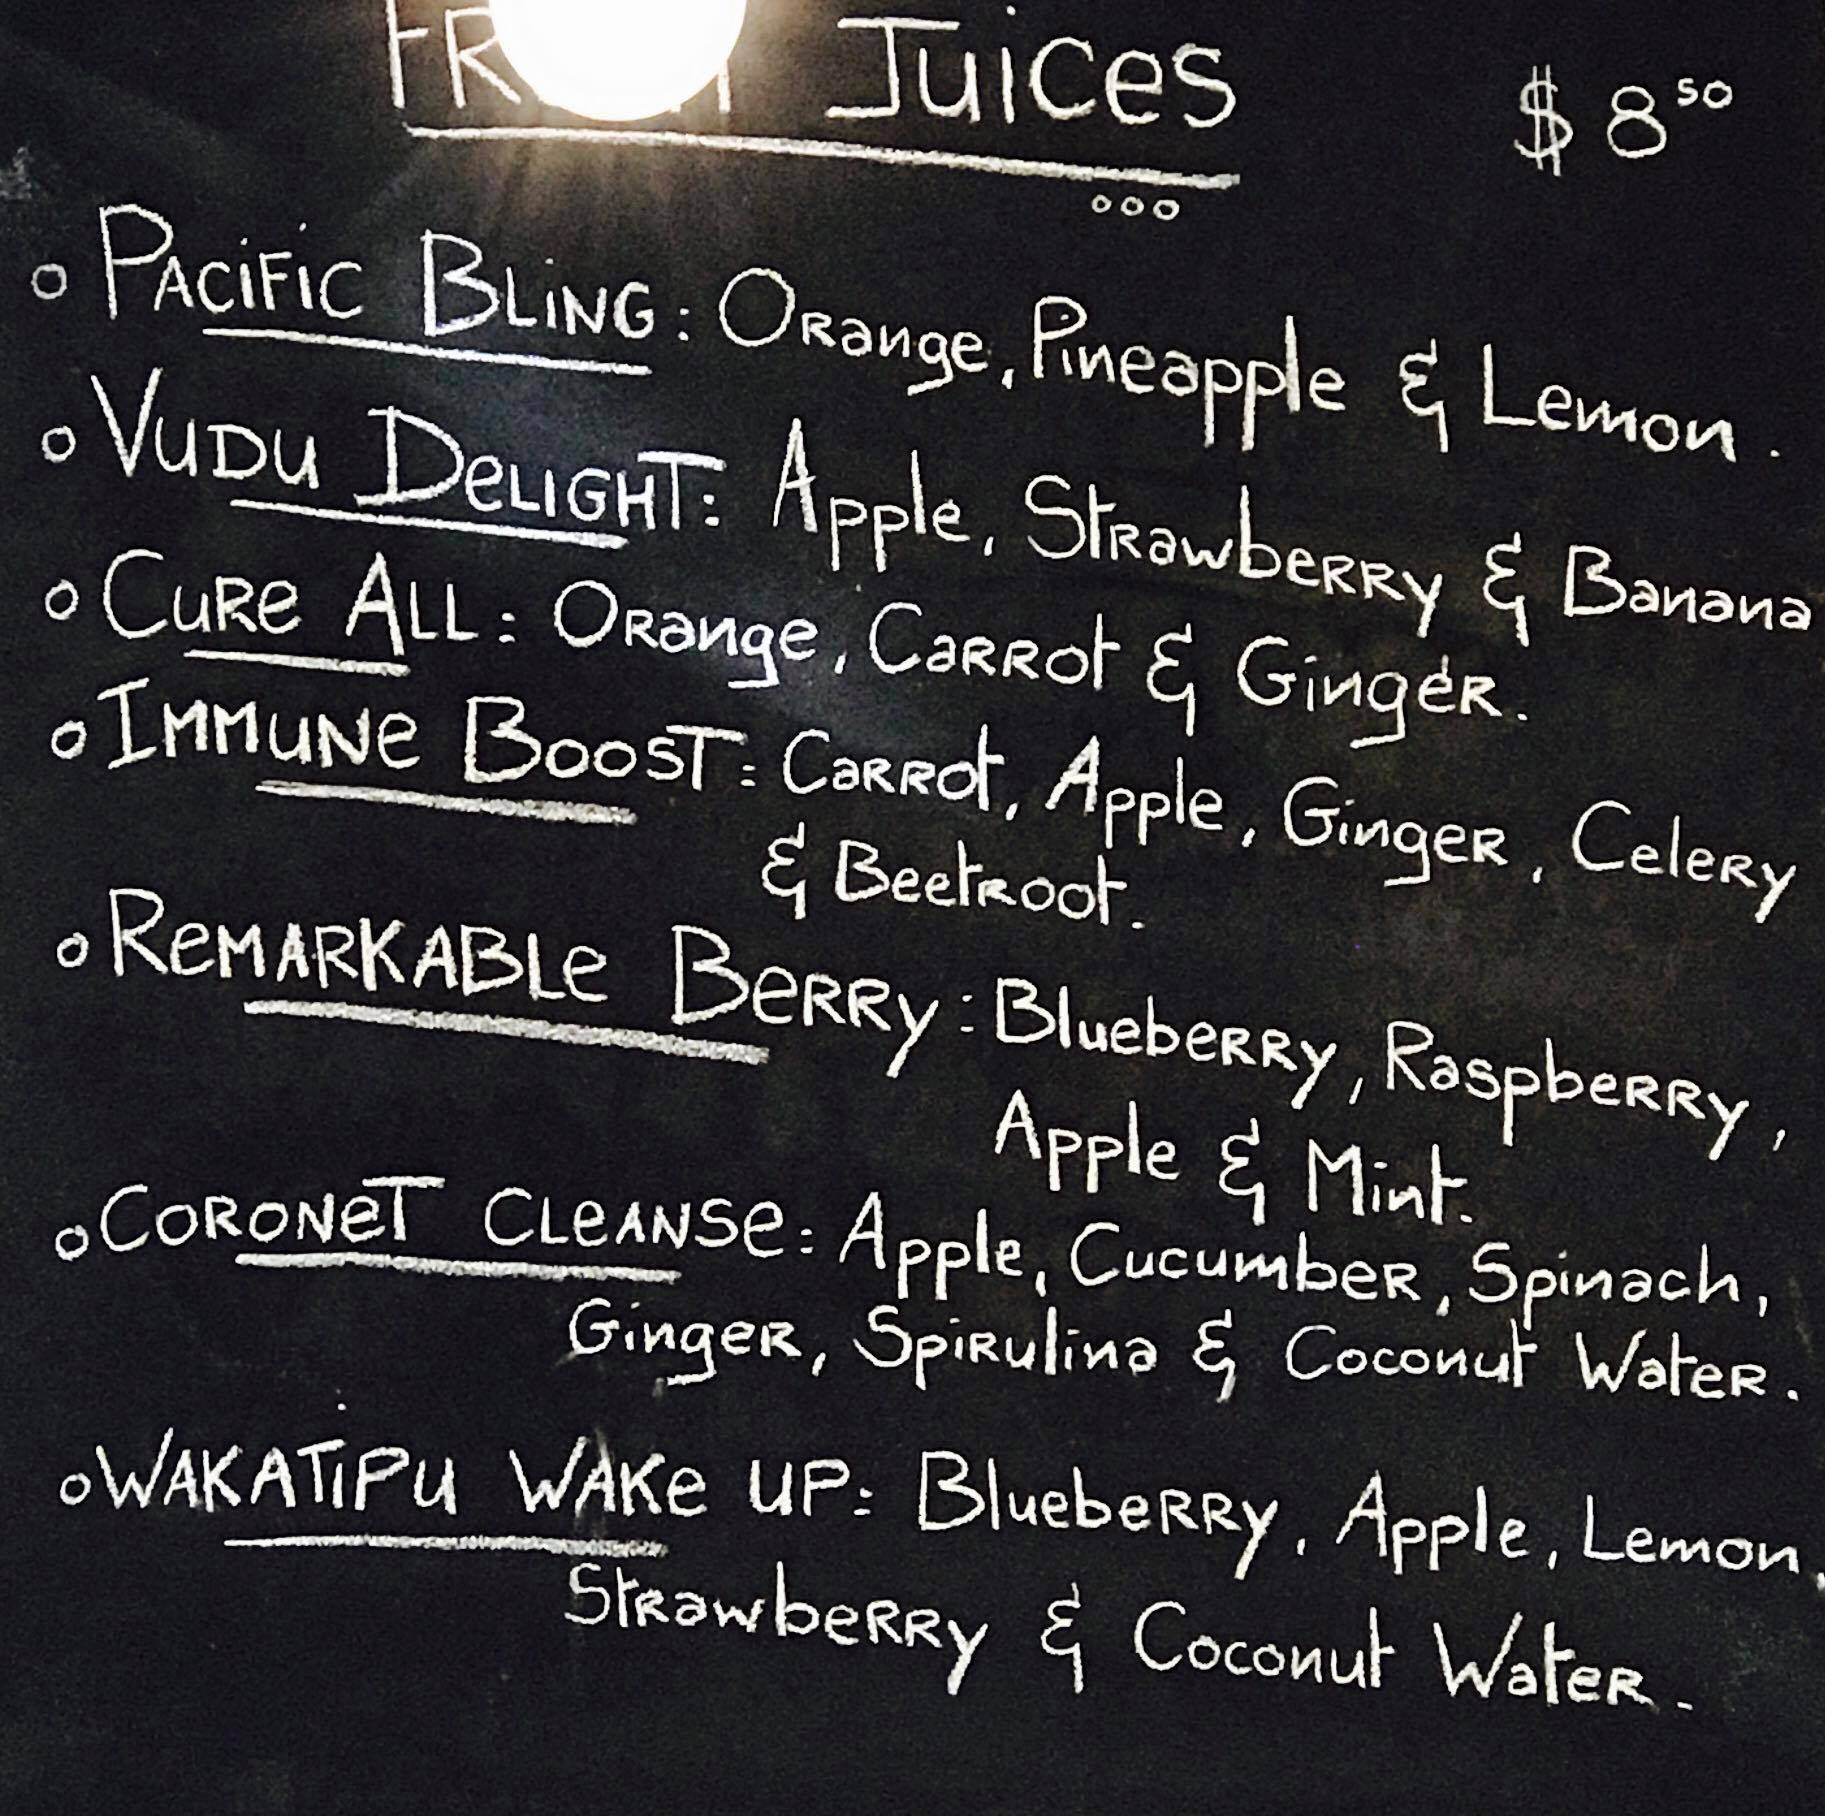 Juices $8.50
Pacific Bling: Orange, Pineapple & Lemon.
Vudu Delight: Apple, Strawberry & Banana
Cure All: Orange, Carrot & Ginger.
Immune Boost: Carrot, Apple, Ginger, Celery
& Beetroot.
Remarkable Berry: Blueberry, Raspberry,
Apple & Mint.
Coronet Cleanse: Apple, Cucumber, Spinach,
Ginger, Spirulina & Coconut Water.
Wakatipu Wake Up: Blueberry, Apple, Lemon,
Strawberry & Coconut Water.